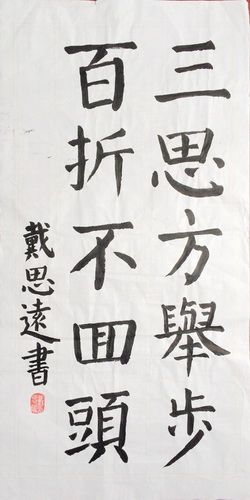 三思方舉步
百折不回頭
戴思遠書